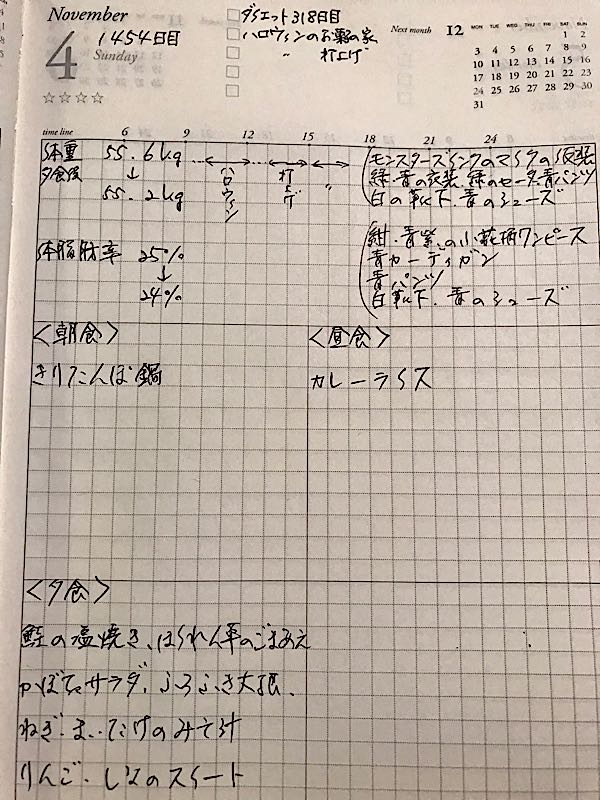 November
4
1454日目
Sunday
☆☆☆☆
ダイエット318日目
ハロウィンのお菓子の家
〃 打上げ
Next month 12
MON TUE WED THU FRI SAT SUN
1 2
3 4 5 6 7 8 9
10 11 12 13 14 15 16
17 18 19 20 21 22 23
24 25 26 27 28 29 30
31
time line 6 9 12 15 18 21 24
体重 55.6kg
夕食後 ↓
55.2kg
ハロウィン
打上げ
〃
モンスターズインクのマイクの仮装
緑・青の衣装、緑のセーター、青パンツ
白の靴下、青のシューズ
体脂肪率 25%
↓
24%
紺・青紫の小花柄ワンピース
青カーディガン
青パンツ
白靴下、青のシューズ
<朝食>
きりたんぽ鍋
<昼食>
カレーライス
<夕食>
鮭の塩焼き、ほうれん草のごまあえ
かぼちゃサラダ、ふろふき大根、
ねぎ・まいたけのみそ汁
りんご・しなのスイート